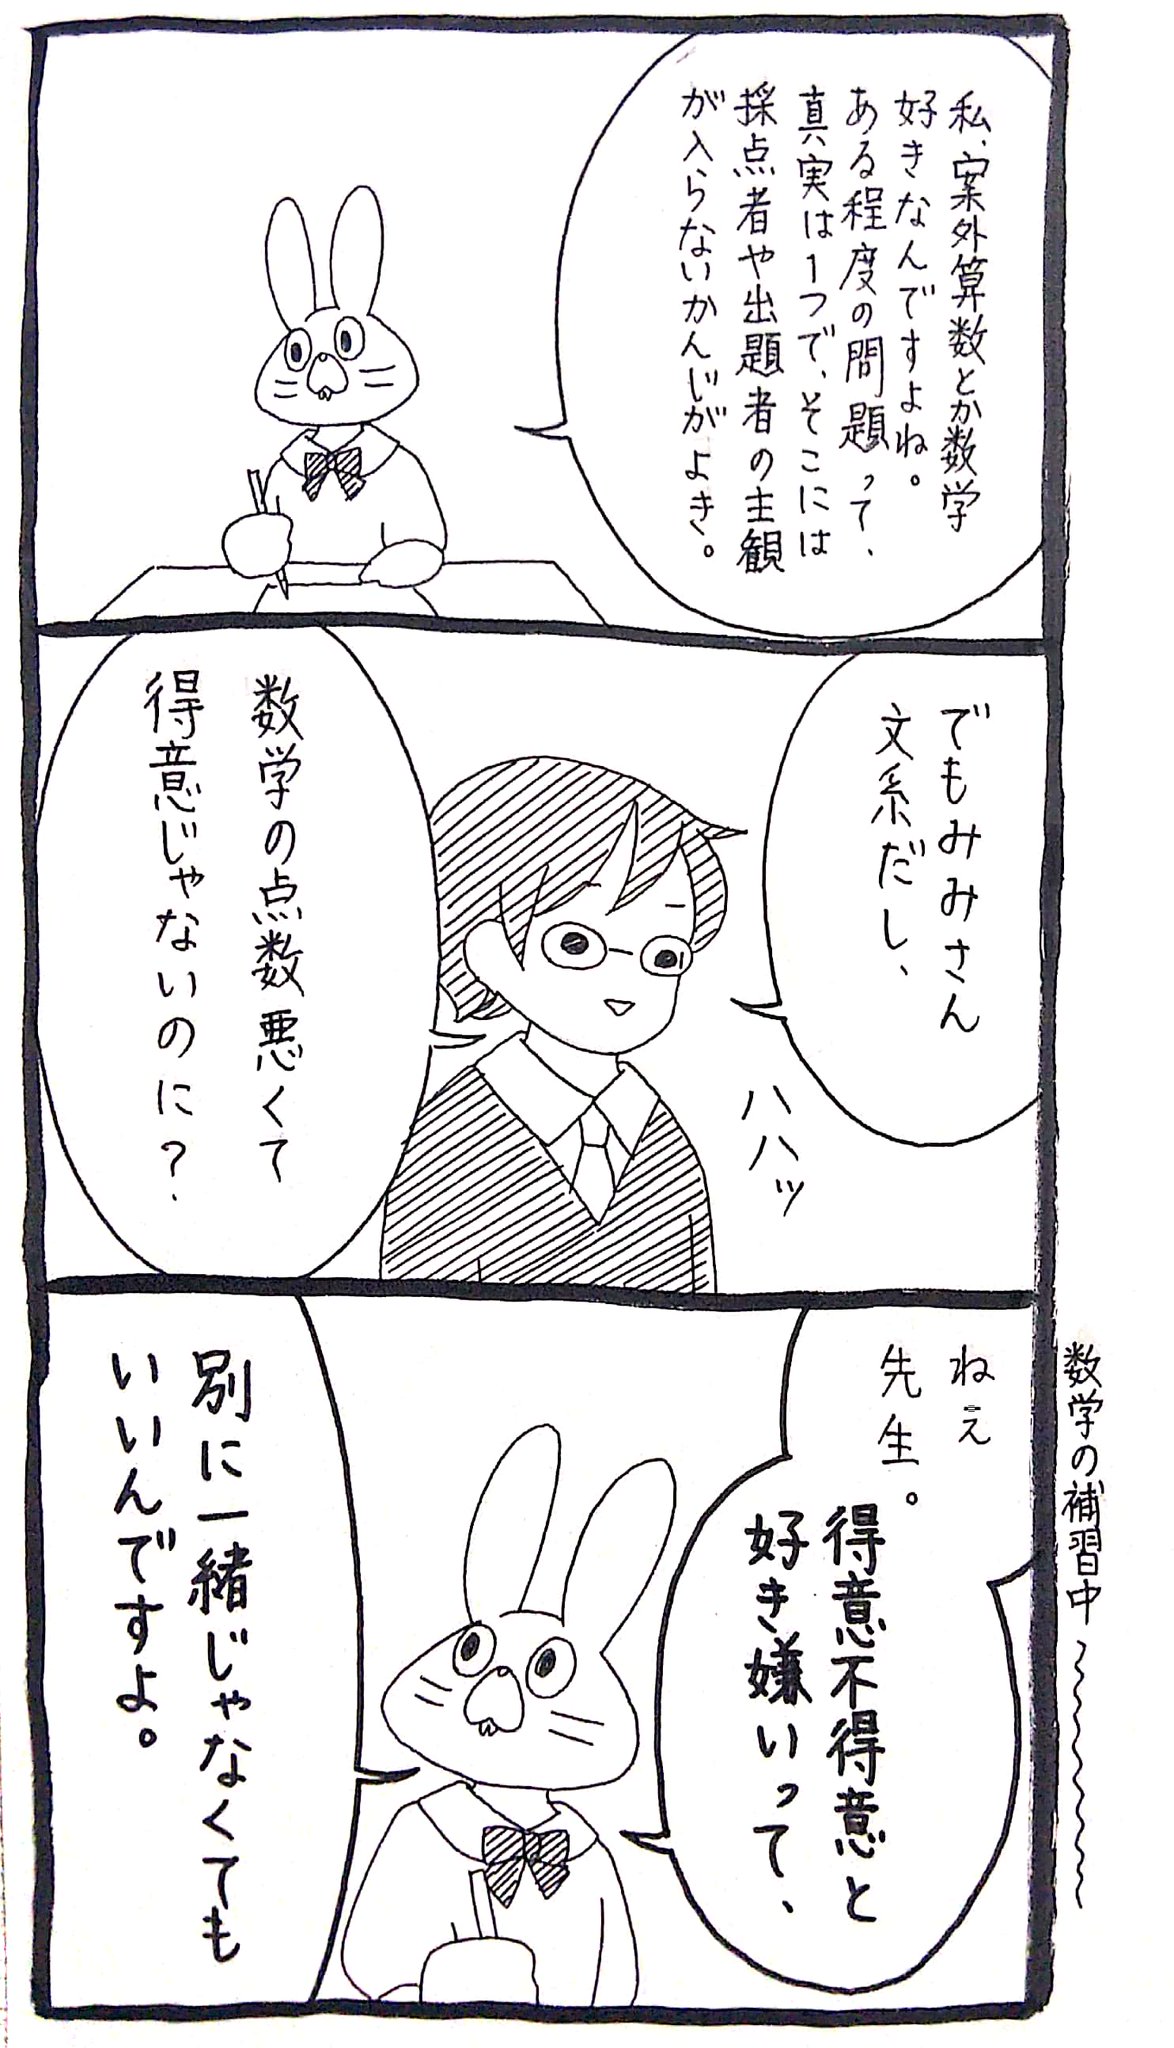 私、案外算数とか数学
好きなんですよね。
ある程度の問題って、
真実は1つで、そこには
採点者や出題者の主観
が入らないかんじがよき。
でもみみさん
文系だし、
ハハッ
数学の点数悪くて
得意じゃないのに？
ねぇ
先生。
得意不得意と
好き嫌いって、
別に一緒じゃなくても
いいんですよ。
数学の補習中